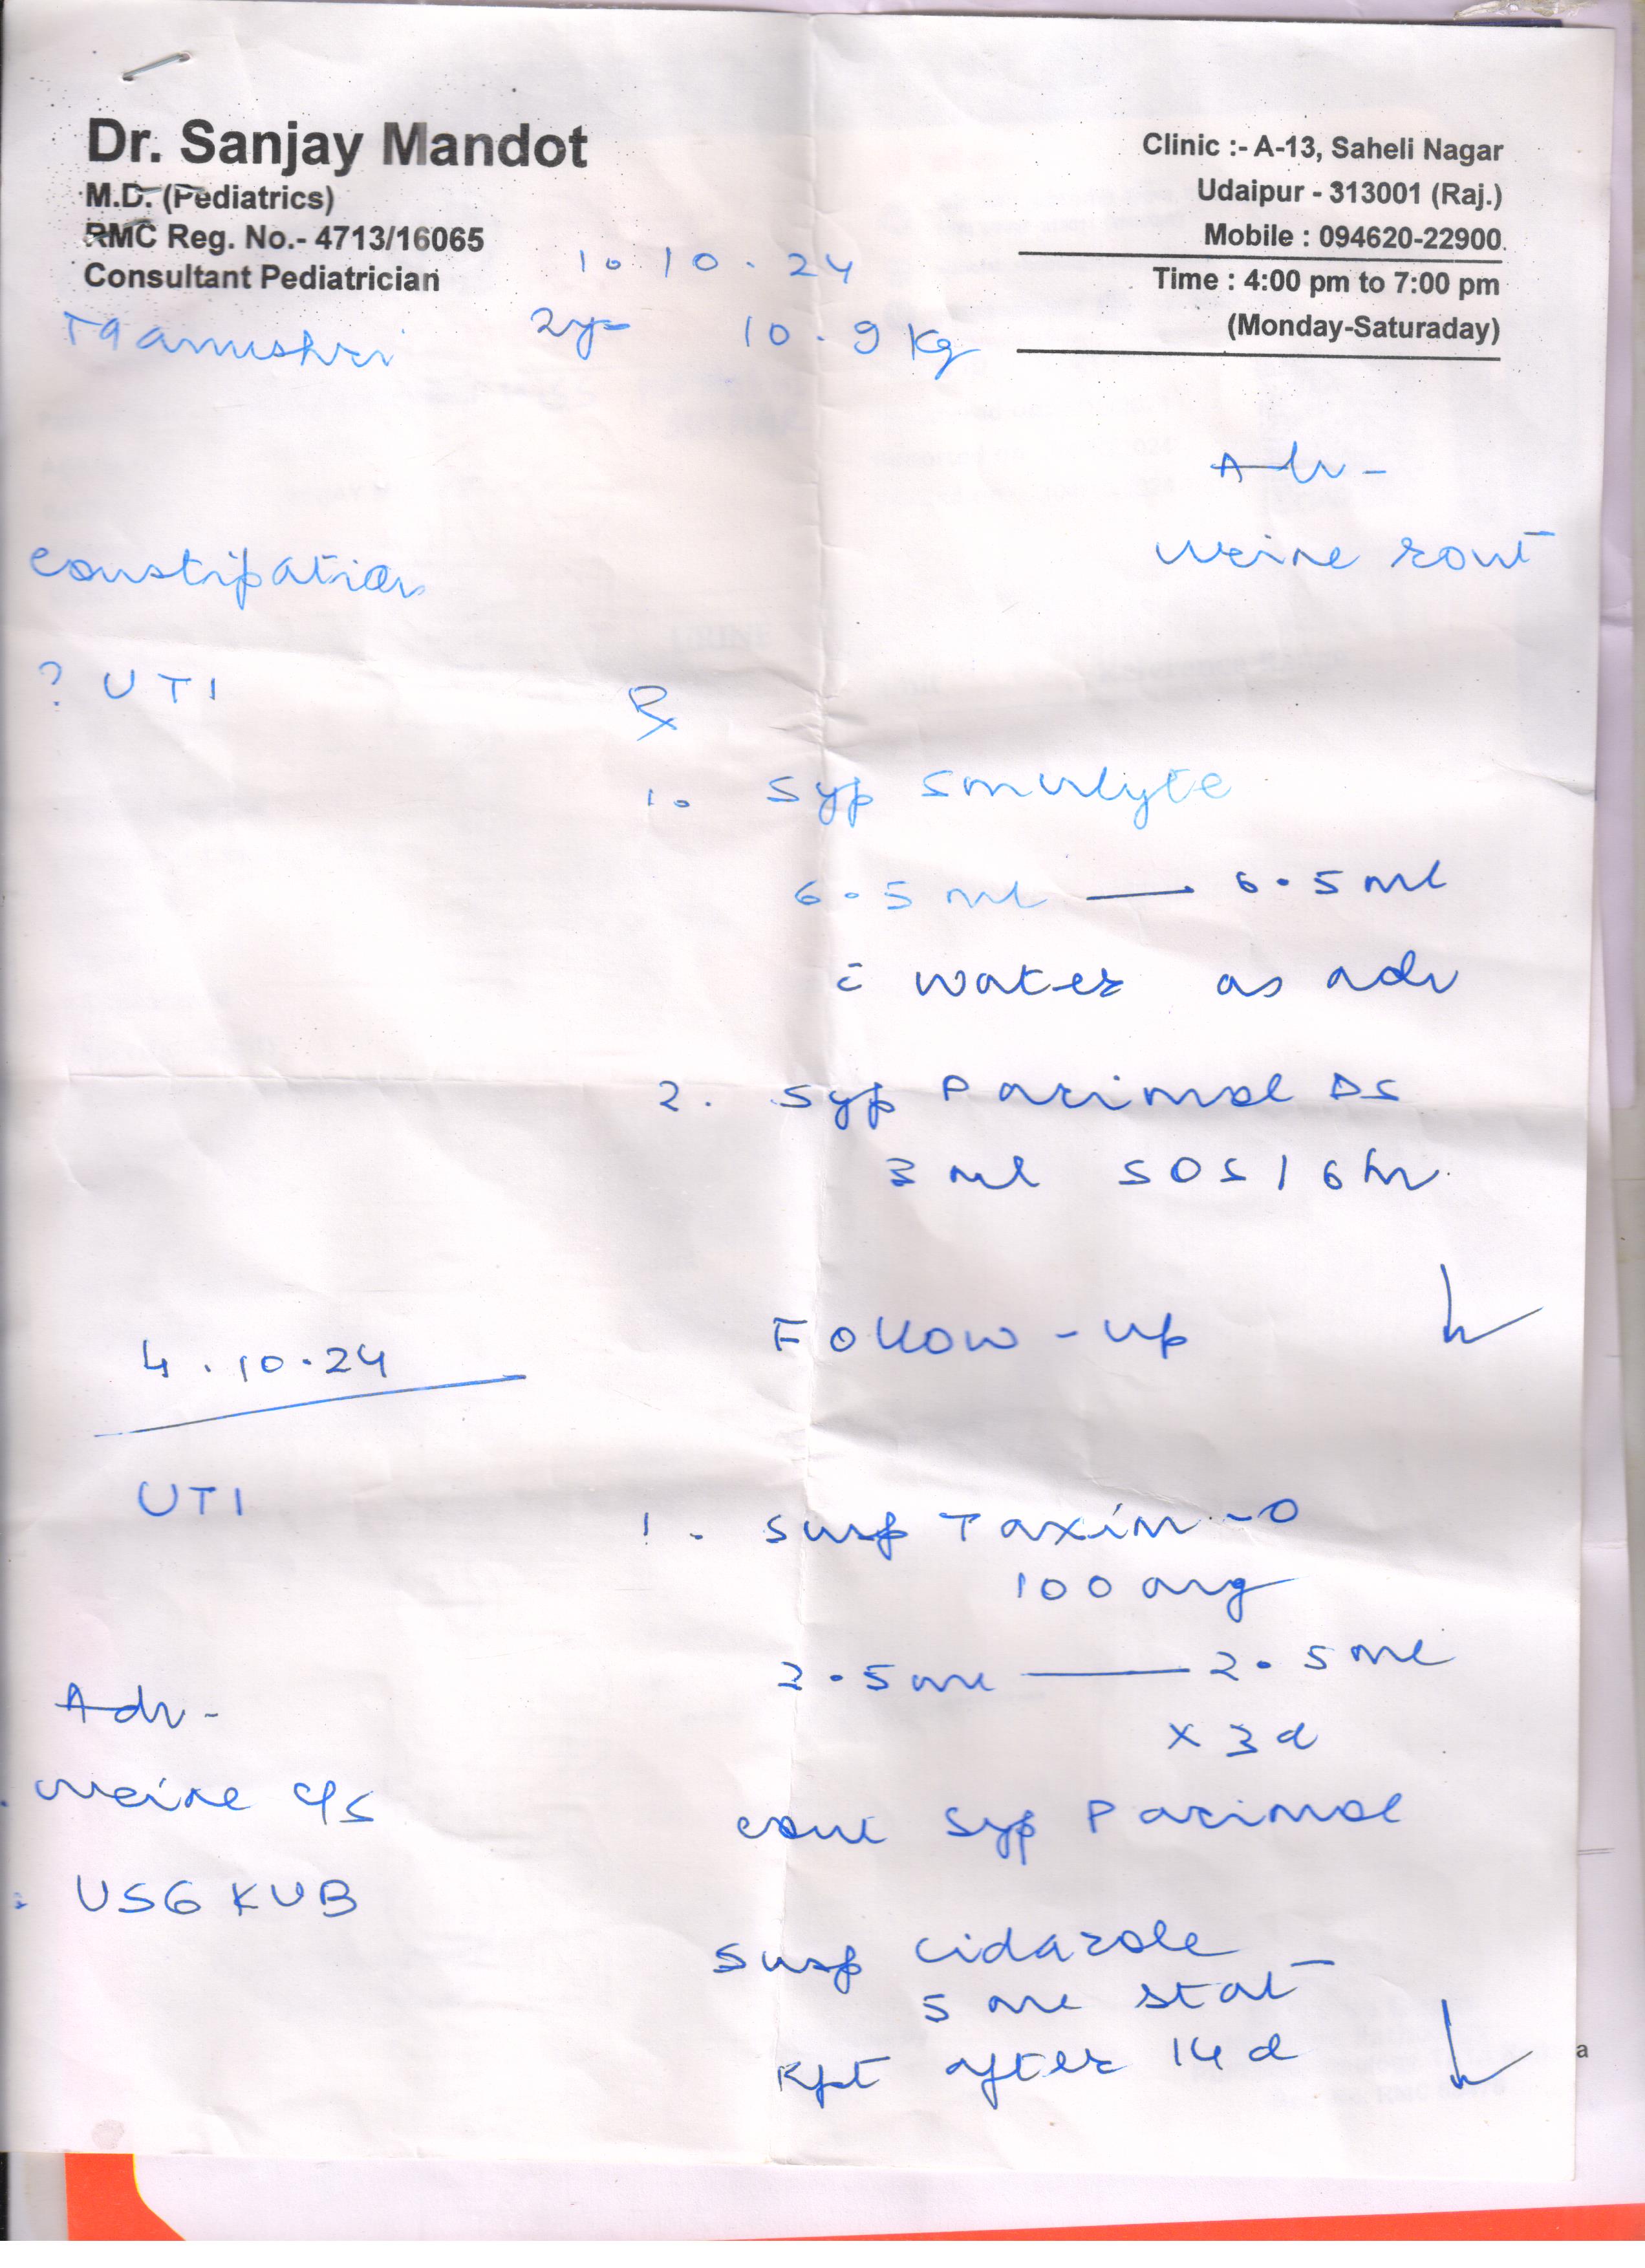 Dr. Sanjay Mandot
M.D. (Pediatrics)
RMC Reg. No.- 4713/16065
Consultant Pediatrician
Clinic :- A-13, Saheli Nagar
Udaipur - 313001 (Raj.)
Mobile : 094620-22900
Time : 4:00 pm to 7:00 pm
(Monday-Saturaday)
10.10.24
2y 10.9 Kg
Adv -
urine rout
constipation
? UTI
Rx
1. Syp
6.5 ml — 6.5 ml
c̄ water as adv
2. Syp Parimol DS
3 ml SOS / 6 hr
Follow-up
4.10.24
UTI
1. Susp Taxim-O
100 mg
2.5 ml — 2.5 ml
x 3d
Adv -
urine c/s
cont Syp Parimol
USG KUB
Susp Cidazole
5 ml stat
Rpt after 14 d
a